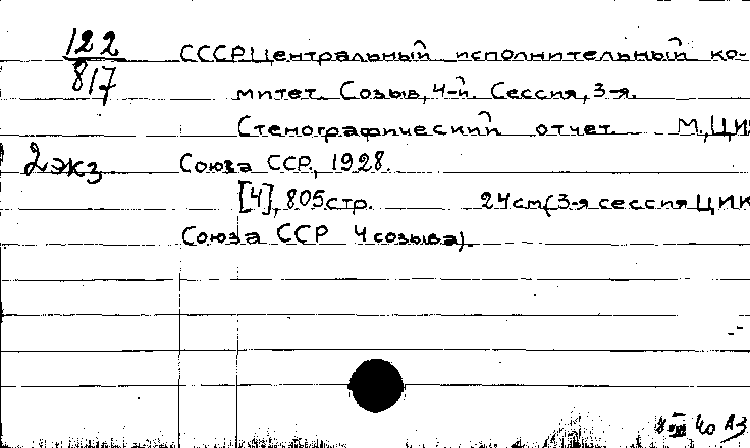 122
817
СССР Центральный исполнительный ко-
митет. Созыв, 4-й. Сессия, 3-я.
Стенографический отчет. М., ЦИК
2 экз
Союза ССР, 1928.
[4], 805 стр. 24 см (3-я сессия ЦИК
Союза ССР 4 созыва).